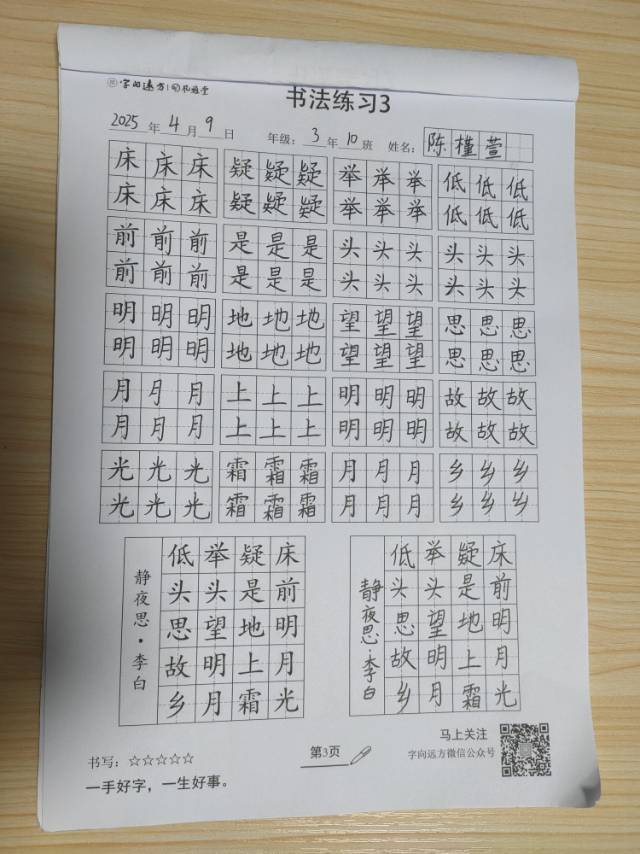 字向远方
书法练习3
2025年4月9日 年级：3年10班 姓名：陈槿萱
床床床 疑疑疑 举举举 低低低
床床床 疑疑疑 举举举 低低低
前前前 是是是 头头头 头头头
前前前 是是是 头头头 头头头
明明明 地地地 望望望 思思思
明明明 地地地 望望望 思思思
月月月 上上上 明明明 故故故
月月月 上上上 明明明 故故故
光光光 霜霜霜 月月月 乡乡乡
光光光 霜霜霜 月月月 乡乡乡
床前明月光
疑是地上霜
举头望明月
低头思故乡
静夜思·李白
床前明月光
疑是地上霜
举头望明月
低头思故乡
静夜思·李白
书写：☆☆☆☆☆
一手好字，一生好事。
第3页
马上关注
字向远方微信公众号